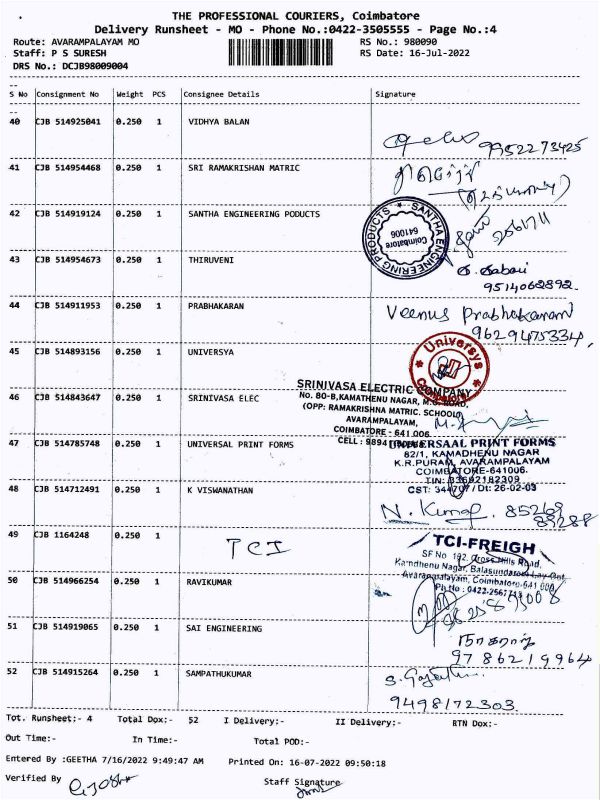 THE PROFESSIONAL COURIERS, Coimbatore
Delivery Runsheet - MO - Phone No.:0422-3505555 - Page No.:4
Route: AVARAMPALAYAM MO RS No.: 980090
Staff: P S SURESH RS Date: 16-Jul-2022
DRS No.: DCJB98009004
S No Consignment No Weight PCS Consignee Details Signature
40 CJB 514925041 0.250 1 VIDHYA BALAN
9952273425
41 CJB 514954468 0.250 1 SRI RAMAKRISHAN MATRIC
42 CJB 514919124 0.250 1 SANTHA ENGINEERING PODUCTS
SANTHA ENGINEERING PRODUCTS
Coimbatore
641006
43 CJB 514954673 0.250 1 THIRUVENI
9514062892.
44 CJB 514911953 0.250 1 PRABHAKARAN Veenus Prabhakaran
9629475334,
45 CJB 514893156 0.250 1 UNIVERSYA
Universys
Coimbatore
46 CJB 514843647 0.250 1 SRINIVASA ELEC
SRINIVASA ELECTRIC COMPANY
No. 80-B,KAMATHENU NAGAR, M.G. ROAD,
(OPP: RAMAKRISHNA MATRIC. SCHOOL)
AVARAMPALAYAM,
COIMBATORE - 641 006
CELL : 9894
47 CJB 514785748 0.250 1 UNIVERSAL PRINT FORMS
UNIVERSAAL PRINT FORMS
82/1, KAMADHENU NAGAR
K.R.PURAM, AVARAMPALAYAM
COIMBATORE-641006.
TIN: 33592182309
CST: 344707 / Dt: 26-02-03
48 CJB 514712491 0.250 1 K VISWANATHAN
N. Kumar. 85269
89288
49 CJB 1164248 0.250 1 TCI
TCI-FREIGH
SF No 192, Cross Hills Road,
Kamdhenu Nagar, Balasundaram Lay Out,
Avarampalayam, Coimbatore-641 006
50 CJB 514966254 0.250 1 RAVIKUMAR
51 CJB 514919065 0.250 1 SAI ENGINEERING
நாகராஜ்
9786219964
52 CJB 514915264 0.250 1 SAMPATHUKUMAR
9498172303
Tot. Runsheet:- 4 Total Dox:- 52 I Delivery:- II Delivery:- RTN Dox:-
Out Time:- In Time:- Total POD:-
Entered By :GEETHA 7/16/2022 9:49:47 AM Printed On: 16-07-2022 09:50:18
Verified By Staff Signature